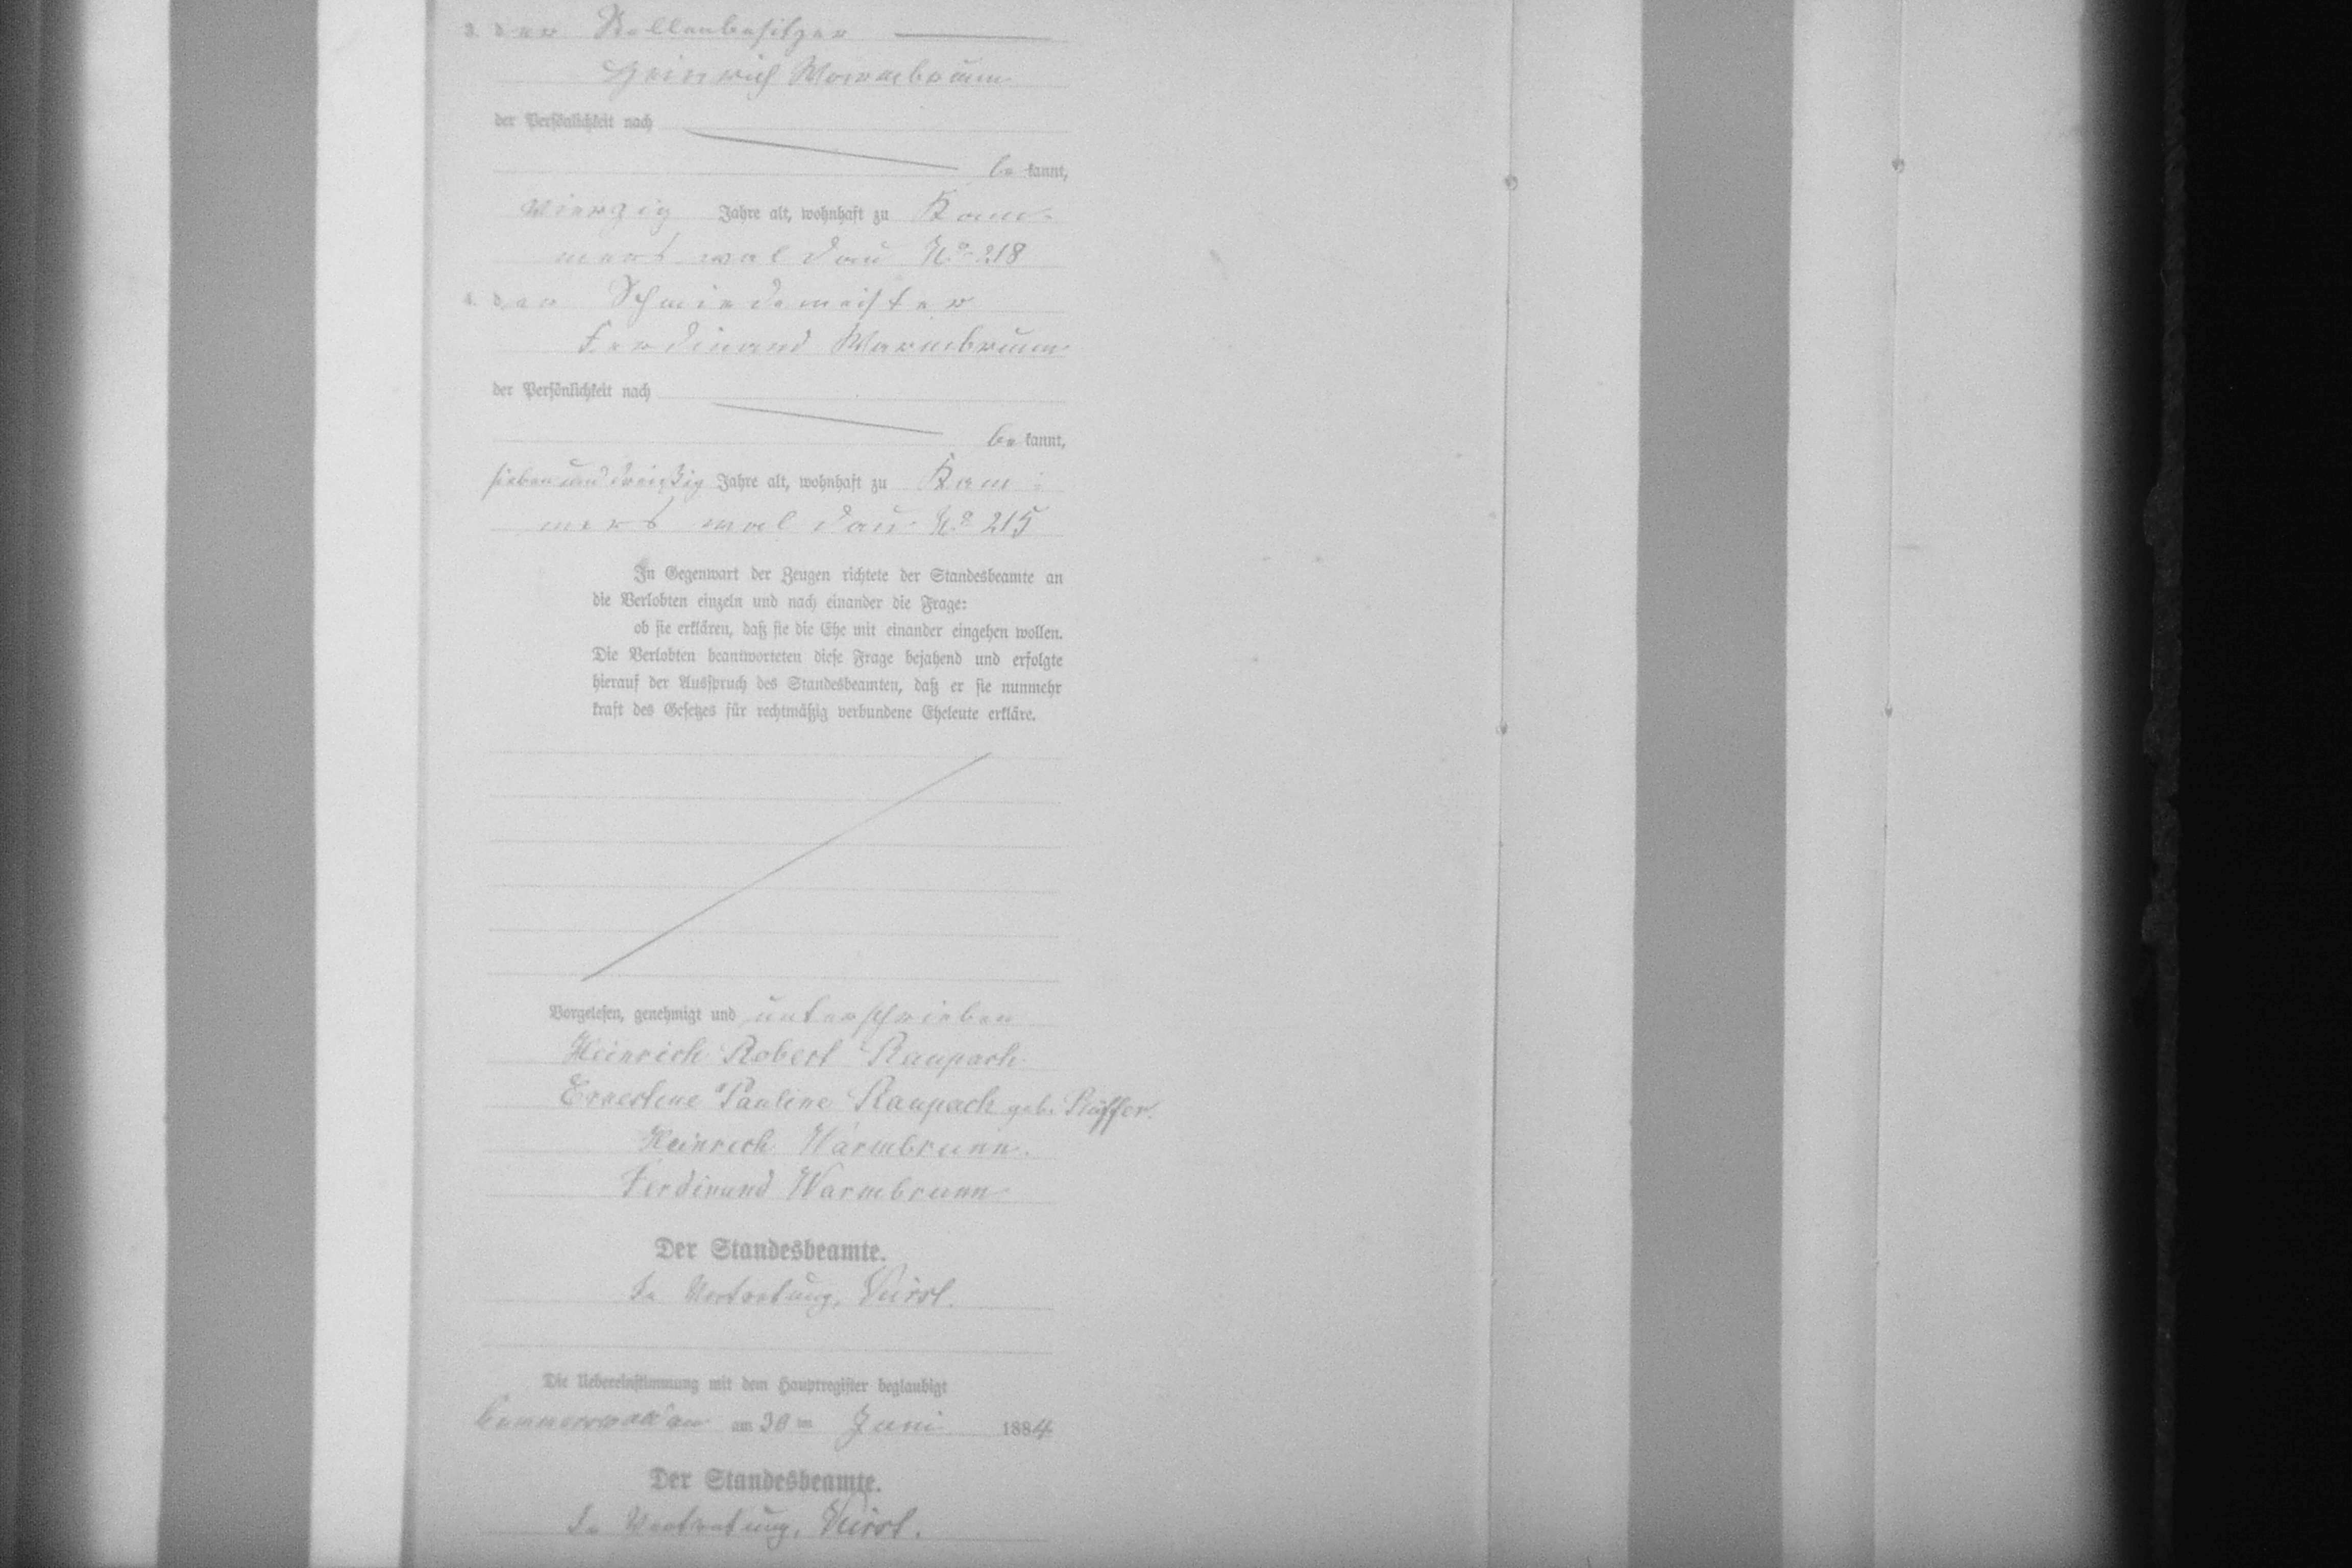 3. der Stellenbesitzer
Heinrich Warmbrunn
der Persönlichkeit nach
be kannt,
vierzig Jahre alt, wohnhaft zu Kam-
merswaldau No 218
4. der Schmiedemeister
Ferdinand Warmbrunn
der Persönlichkeit nach
be kannt,
sieben und dreißig Jahre alt, wohnhaft zu Kam-
merswaldau No 215
In Gegenwart der Zeugen richtete der Standesbeamte an
die Verlobten einzeln und nach einander die Frage:
ob sie erklären, daß sie die Ehe mit einander eingehen wollen.
Die Verlobten beantworteten diese Frage bejahend und erfolgte
hierauf der Ausspruch des Standesbeamten, daß er sie nunmehr
kraft des Gesetzes für rechtmäßig verbundene Eheleute erkläre.
Vorgelesen, genehmigt und unterschrieben
Heinrich Robert Raupach
Ernestine Pauline Raupach geb.
Heinrich Warmbrunn.
Ferdinand Warmbrunn
Der Standesbeamte.
In Vertretung,
Die Uebereinstimmung mit dem Hauptregister beglaubigt
Cammerswaldau am 30 ten Juni 1884
Der Standesbeamte.
In Vertretung,